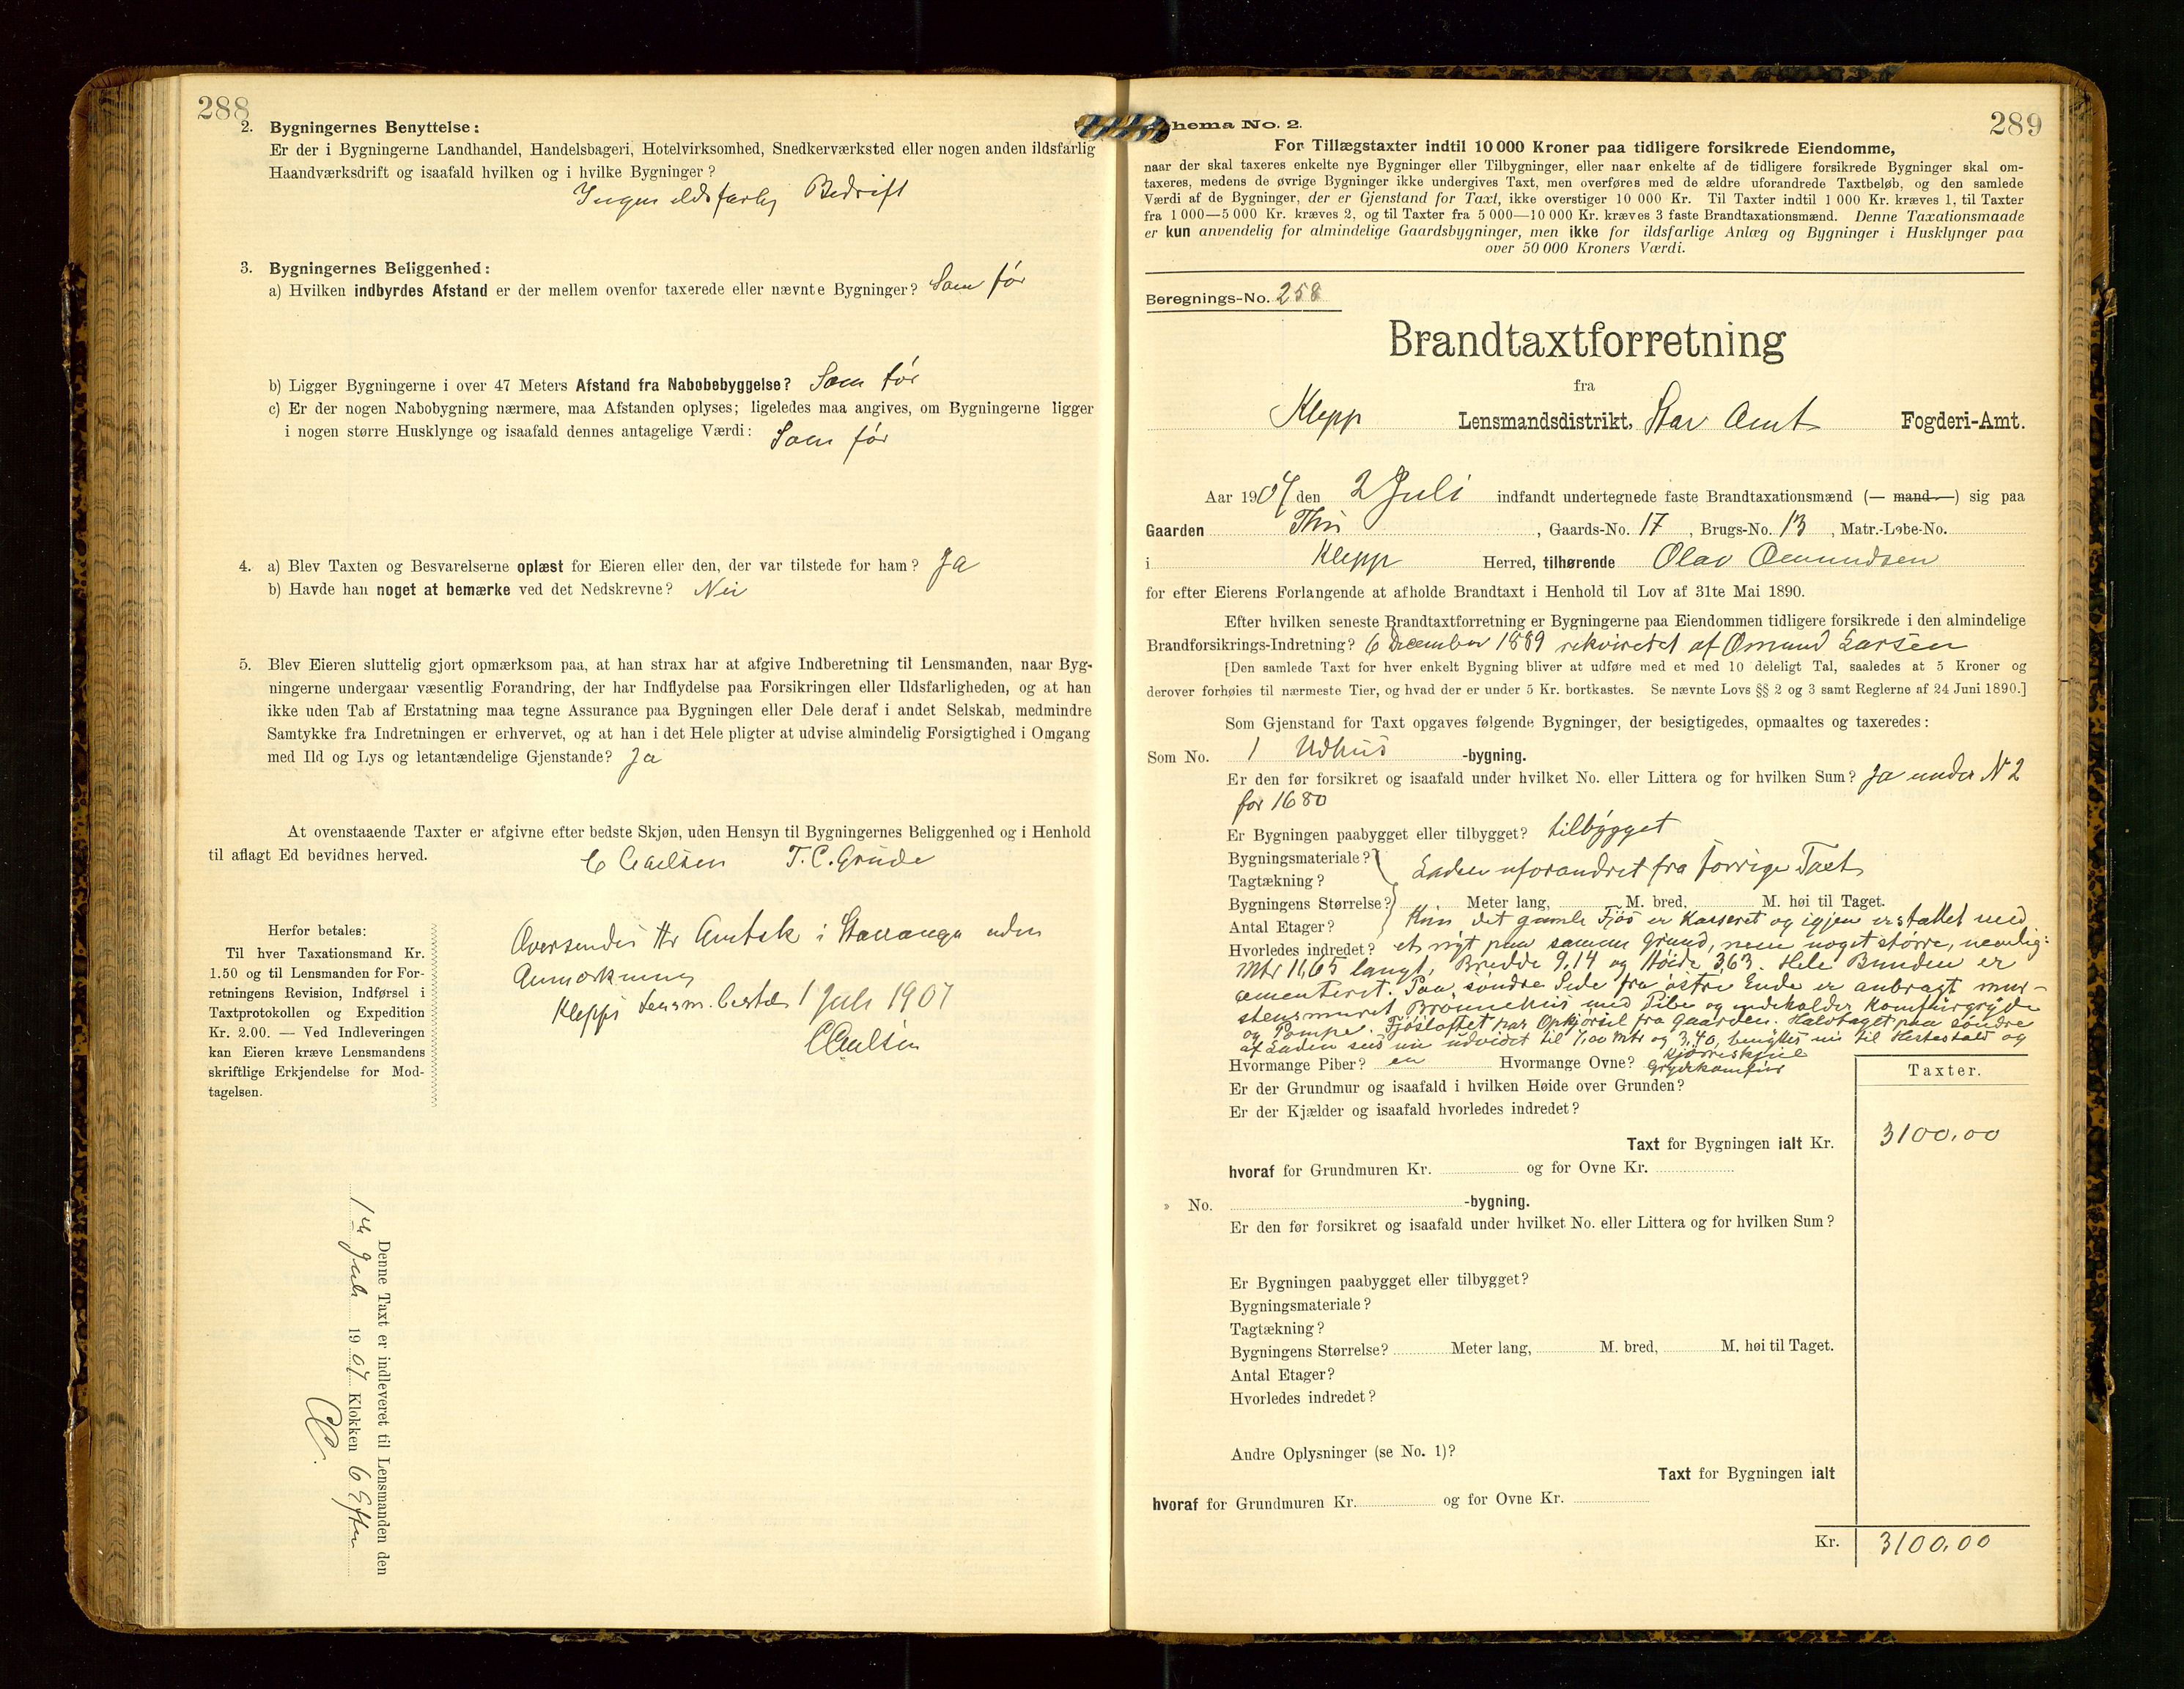 288
2. Bygningernes Benyttelse:
Er der i Bygningerne Landhandel, Handelsbageri, Hotelvirksomhed, Snedkerværksted eller nogen anden ildsfarlig
Haandværksdrift og isaafald hvilken og i hvilke Bygninger?
Ingen ildsfarlig Bedrift
3. Bygningernes Beliggenhed:
a) Hvilken indbyrdes Afstand er der mellem ovenfor taxerede eller nævnte Bygninger? Som før
b) Ligger Bygningerne i over 47 Meters Afstand fra Nabobebyggelse? Som før
c) Er der nogen Nabobygning nærmere, maa Afstanden oplyses; ligeledes maa angives, om Bygningerne ligger
i nogen større Husklynge og isaafald dennes antagelige Værdi: Som før
4. a) Blev Taxten og Besvarelserne oplæst for Eieren eller den, der var tilstede for ham? Ja
b) Havde han noget at bemærke ved det Nedskrevne? Nei
5. Blev Eieren sluttelig gjort opmærksom paa, at han strax har at afgive Indberetning til Lensmanden, naar Byg-
ningerne undergaar væsentlig Forandring, der har Indflydelse paa Forsikringen eller Ildsfarligheden, og at han
ikke uden Tab af Erstatning maa tegne Assurance paa Bygningen eller Dele deraf i andet Selskab, medmindre
Samtykke fra Indretningen er erhvervet, og at han i det Hele pligter at udvise almindelig Forsigtighed i Omgang
med Ild og Lys og letantændelige Gjenstande? Ja
At ovenstaaende Taxter er afgivne efter bedste Skjøn, uden Hensyn til Bygningernes Beliggenhed og i Henhold
til aflagt Ed bevidnes herved.
T. C. Grude
Herfor betales:
Til hver Taxationsmand Kr.
1.50 og til Lensmanden for For-
retningens Revision, Indførsel i
Taxtprotokollen og Expedition
Kr. 2.00. — Ved Indleveringen
kan Eieren kræve Lensmandens
skriftlige Erkjendelse for Mod-
tagelsen.
Oversendes Hr Amtsk i Stavanger uden
Anmærkning
Klepps Lensm. bestil 1 Juli 1907
Denne Taxt er indleveret til Lensmanden den
14 Juli 1907 Klokken 6 Efter
289
Schema No. 2.
For Tillægstaxter indtil 10 000 Kroner paa tidligere forsikrede Eiendomme,
naar der skal taxeres enkelte nye Bygninger eller Tilbygninger, eller naar enkelte af de tidligere forsikrede Bygninger skal om-
taxeres, medens de øvrige Bygninger ikke undergives Taxt, men overføres med de ældre uforandrede Taxtbeløb, og den samlede
Værdi af de Bygninger, der er Gjenstand for Taxt, ikke overstiger 10 000 Kr. Til Taxter indtil 1 000 Kr. kræves 1, til Taxter
fra 1 000—5 000 Kr. kræves 2, og til Taxter fra 5 000—10 000 Kr. kræves 3 faste Brandtaxationsmænd. Denne Taxationsmaade
er kun anvendelig for almindelige Gaardsbygninger, men ikke for ildsfarlige Anlæg og Bygninger i Husklynger paa
over 50 000 Kroners Værdi.
Beregnings-No. 258
Brandtaxtforretning
fra
Klepp Lensmandsdistrikt, Stav Amt Fogderi-Amt.
Aar 1907 den 2 Juli indfandt undertegnede faste Brandtaxationsmænd (— mand —) sig paa
Gaarden Thu, Gaards-No. 17, Brugs-No. 13, Matr.-Løbe-No.
i Klepp Herred, tilhørende Olav Omundsen
for efter Eierens Forlangende at afholde Brandtaxt i Henhold til Lov af 31te Mai 1890.
Efter hvilken seneste Brandtaxtforretning er Bygningerne paa Eiendommen tidligere forsikrede i den almindelige
Brandforsikrings-Indretning? 6 December 1889 rekvireret af Omund Larsen
[Den samlede Taxt for hver enkelt Bygning bliver at udføre med et med 10 deleligt Tal, saaledes at 5 Kroner og
derover forhøies til nærmeste Tier, og hvad der er under 5 Kr. bortkastes. Se nævnte Lovs §§ 2 og 3 samt Reglerne af 24 Juni 1890.]
Som Gjenstand for Taxt opgaves følgende Bygninger, der besigtigedes, opmaaltes og taxeredes:
Som No. 1 Udhus -bygning.
Er den før forsikret og isaafald under hvilket No. eller Littera og for hvilken Sum? Ja under N 2
for 1680
Er Bygningen paabygget eller tilbygget? tilbygget
Bygningsmateriale?
Tagtækning? Laden uforandret fra forrige Taxt
Bygningens Størrelse? Meter lang, M. bred, M. høi til Taget.
Antal Etager? Kun det gamle Fjøs er kasseret og igjen erstattet med
Hvorledes indredet? et nyt paa samme Grund, men noget større, nemlig:
Mtr 11,65 langt, Bredde 9,14 og Høide 3,63. Hele Bunden er
cementeret. Paa søndre Side fra østre Ende er anbragt mur-
stensmuret Brønnehus med Pibe og indeholder Komfurgryde
og Pumpe. Fjøsloftet har Opkjørsel fra Gaarden. Halvtaget paa søndre
af Laden sees nu udvidet til 7,00 Mtr og 3,40, benyttes nu til Hestestald og
Hvormange Piber? en Hvormange Ovne? Grydekomfur
Er der Grundmur og isaafald i hvilken Høide over Grunden?
Er der Kjælder og isaafald hvorledes indredet?
Taxter.
Taxt for Bygningen ialt Kr. 3100,00
hvoraf for Grundmuren Kr. og for Ovne Kr.
» No. -bygning.
Er den før forsikret og isaafald under hvilket No. eller Littera og for hvilken Sum?
Er Bygningen paabygget eller tilbygget?
Bygningsmateriale?
Tagtækning?
Bygningens Størrelse? Meter lang, M. bred, M. høi til Taget.
Antal Etager?
Hvorledes indredet?
Andre Oplysninger (se No. 1)?
Taxt for Bygningen ialt
hvoraf for Grundmuren Kr. og for Ovne Kr.
Kr. 3100,00